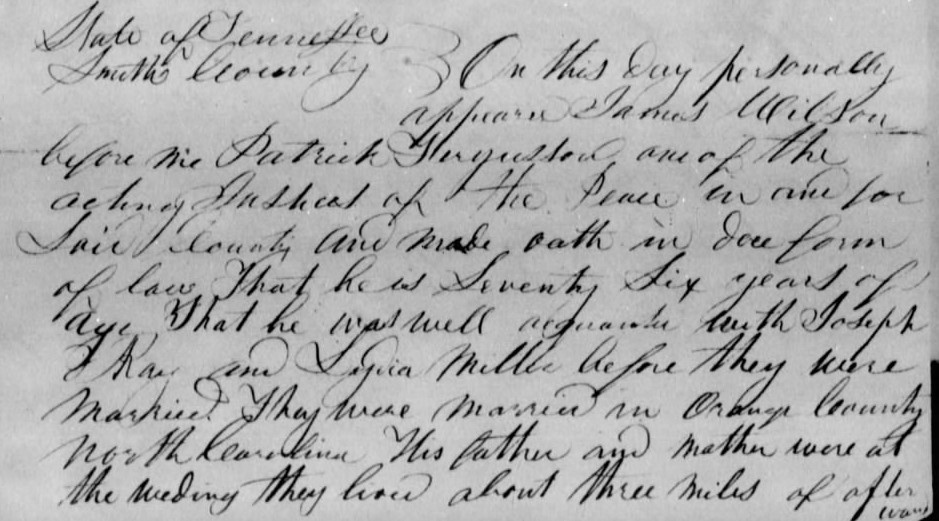 State of Tennessee
Smith County } On this day personally
appeare James Wilson
before me Patrick Fergusson one of the
acting Justices of the Peace in and for
Said County and made oath in due form
of law That he is Seventy Six years of
age That he was well acquainted with Joseph
Ray and Lydia Miller before they were
married They were married in Orange County
North Carolina His father and mother were at
the weding they lived about three miles of after
wards